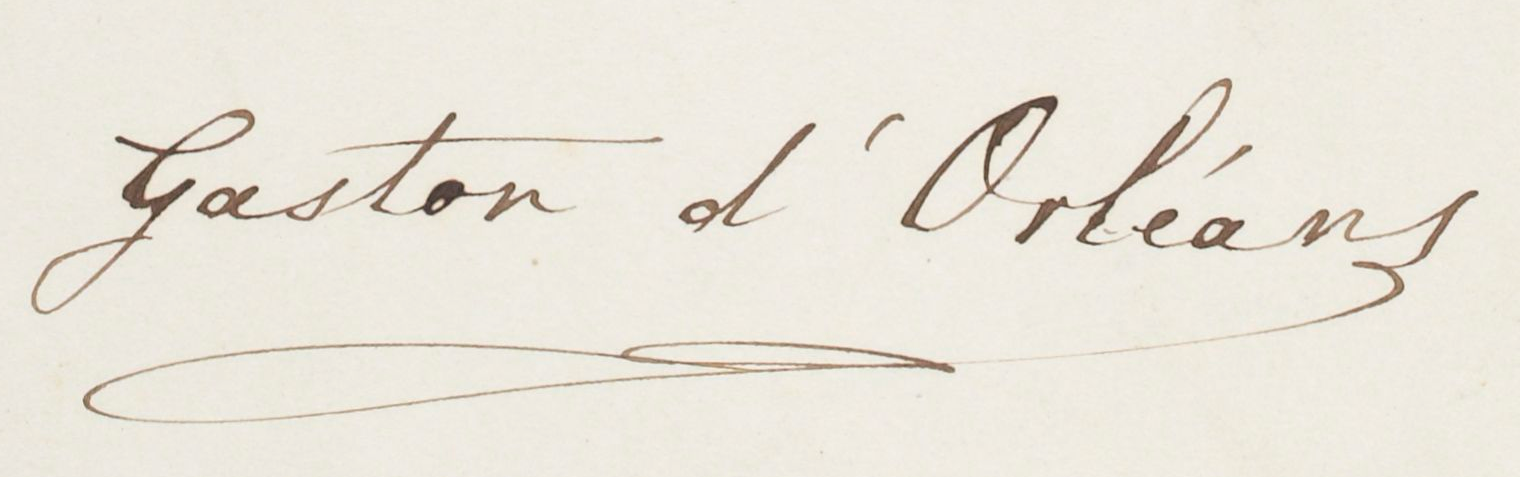 Gaston d'Orléans